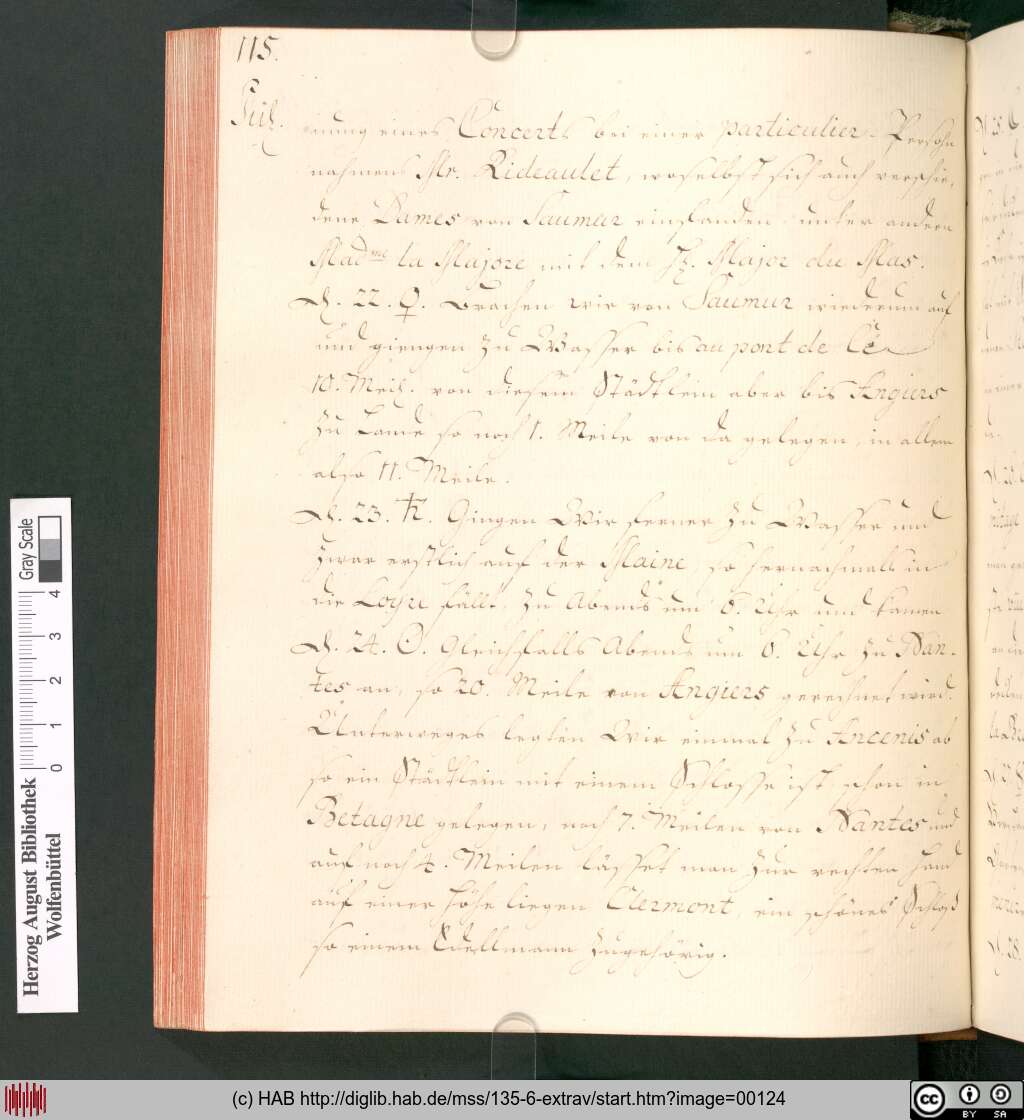 115.
Jul.
nung eines Concerts bei einer particulier-Persohn
nahmens Mr. Rideaulet, woselbst sich auch verschie-
dene Dames von Saumur einfanden unter andern
Madme la Majore mit dem H. Major du Mas.
D. 22. ♀. Brachen wir von Saumur wiederum auf
und giengen zu Wasser bis au pont de Cé
10. Meil. von diesem Städtlein aber bis Angiers
zu Lande so noch 1. Meile von da gelegen, in allem
also 11. Meile.
D. 23. ♄. Gingen Wir ferner zu Wasser und
zwar erstlich auf der Maine, so hernachmals in
die Loyre fällt, zu Abends um 6. Uhr und kamen
D. 24. ☉. Gleichfalls Abends um 6. Uhr zu Nan-
tes an, so 20. Meile von Angiers gerechnet wird.
Unterweges legten Wir einmal zu Ancenis ab
so ein Städtlein mit einem Schlosse ist, schon in
Betagne gelegen, noch 7. Meilen von Nantes und
auf noch 4. Meilen lässet man zur rechten Hand
auf einer Höhe liegen Clermont, ein schönes Schloß
so einem Edellmann zugehörig.
Herzog August Bibliothek
Wolfenbüttel
Gray Scale
0 1 2 3 4
(c) HAB http://diglib.hab.de/mss/135-6-extrav/start.htm?image=00124
cc BY SA